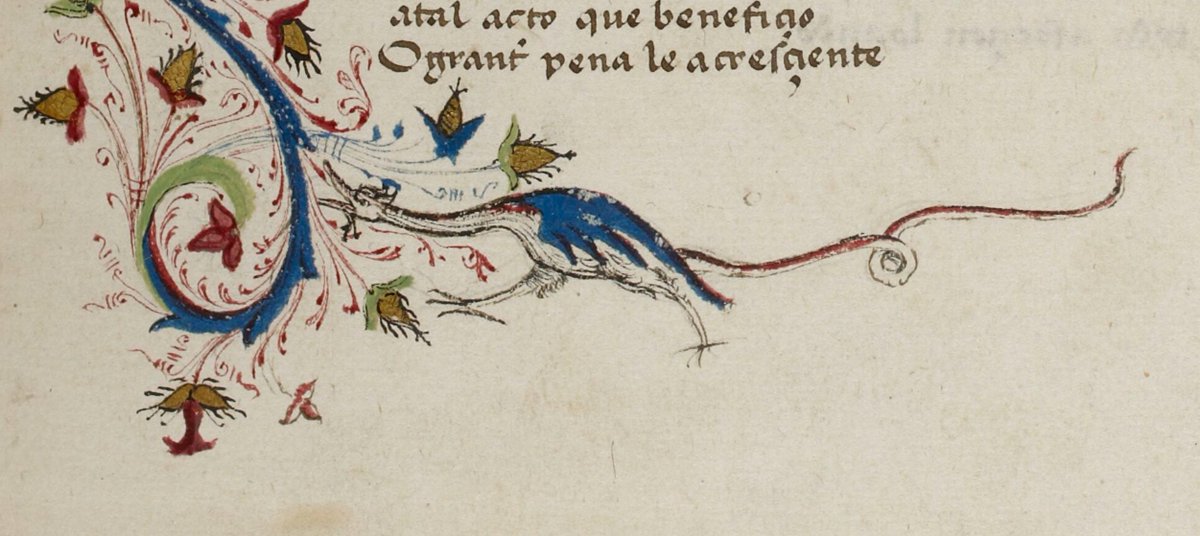 atal acto que benefiçio
O grant pena le acresçiente